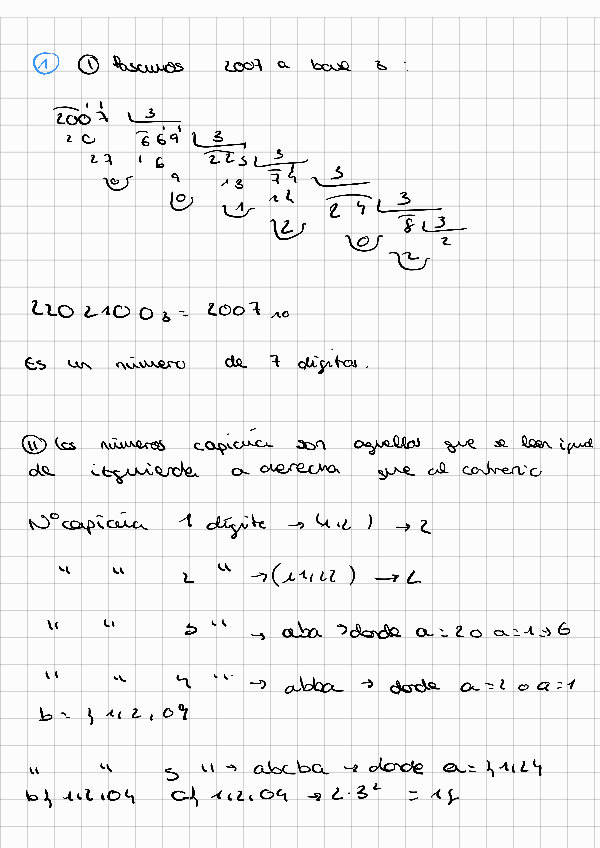 1 I Pasamos 2007 a base 3 :
2007 3
20 669 3
27 16 223 3
0 9 13 74 3
0 1 14 24 3
2 0 8 3
2 2
2202100 3 = 2007 10
Es un número de 7 dígitos.
II Los números capicúa son aquellos que se leen igual
de izquierda a derecha que al contrario
Nº capicúa 1 dígito → (1,2) → 2
" " 2 " → (11,22) → 2
" " 3 " → aba → donde a = 2 o a = 1 → 6
" " 4 " → abba → donde a = 2 o a = 1
b = {1,2,0}
" " 5 " → abcba → donde a = {1,2}
b{1,2,0} c{1,2,0} → 2·3² = 18